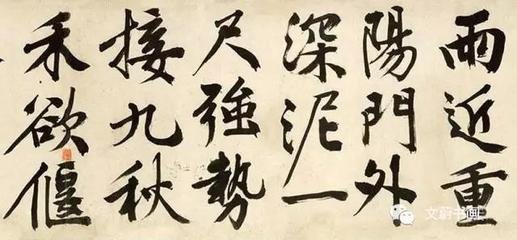 雨近重
陽門外
深泥一
尺強勢
接九秋
禾欲偃
文蔚书画